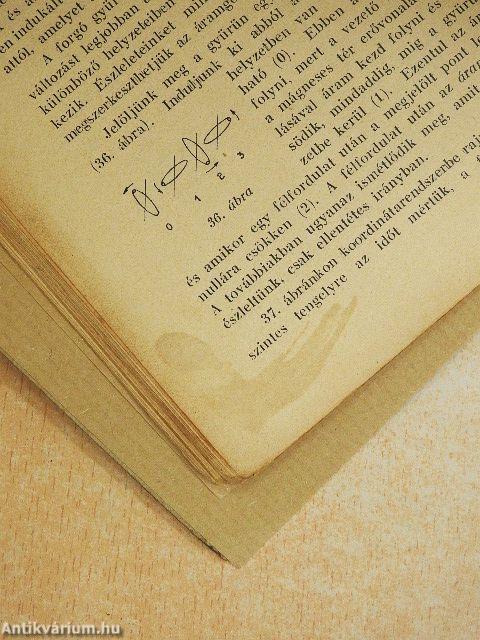 en indukált
attól, amely
A forgó gyűrűn
változást legjobban
különböző helyzeteiben
kezik. Észleleteinket
megszerkeszthetjük az áramgö
Jelöljünk meg a gyűrűn egy
(36. ábra). Induljunk ki abból a
helyzetben van
ható (0). Ebben a
folyni, mert a vezető
a mágneses tér erővonala
lásával áram kezd folyni és
södik, mindaddig, míg a gyűrű
zetbe kerül (1). Ezentúl az ára
0 1 2 3
36. ábra
félfordulat után a megjelölt pont
és amikor egy félfordulat után az áram
nullára csökken (2). A félfordulat
A továbbiakban ugyanaz ismétlődik meg, amit
észleltünk, csak ellentétes irányban.
37. ábránkon koordinátarendszerbe raj
szintes tengelyre az időt mértük, a f
Antikvárium.hu